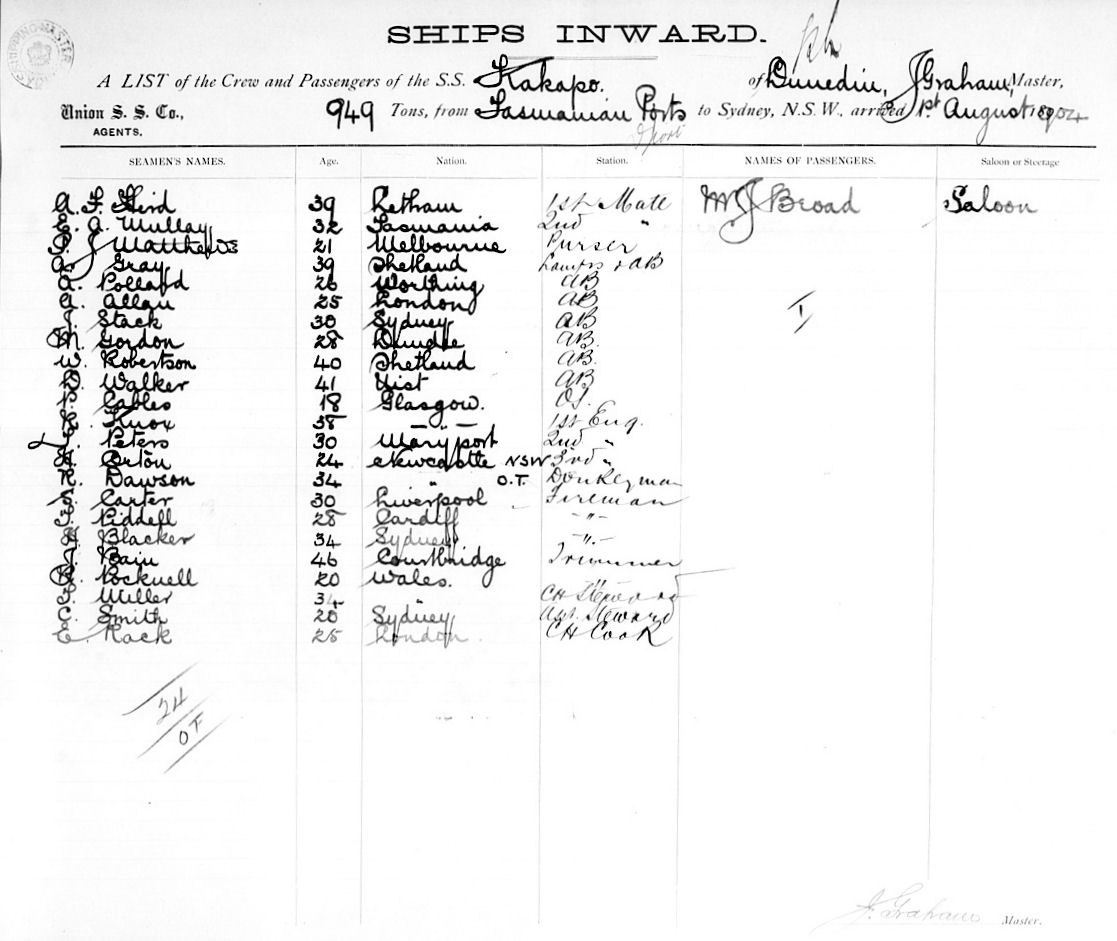 SHIPS INWARD.
A LIST of the Crew and Passengers of the S.S. Kakapo. of Dunedin, J Graham, Master,
Union S. S. Co., 949 Tons, from Tasmanian Ports to Sydney, N.S.W., arrived 1st August 1904
AGENTS.
SEAMEN'S NAMES. Age. Nation. Station. NAMES OF PASSENGERS. Saloon or Steerage
A. F. 39 1st Mate Mr J Broad Saloon
E. A. Mullay 32 Tasmania 2nd "
J Matthews 21 Melbourne Purser
A. Gray 39 Shetland Lamps & AB
A. Pollard 26 Worthing AB
A. Allan 25 London AB
J. Stack 30 Sydney AB
M. Gordon 28 Dundee AB
W. Robertson 40 Shetland AB
D. Walker 41 Uist AB
P. Cables 18 Glasgow. OS
Knox 38 " 1st Eng.
Peters 30 Maryport 2nd "
H. Orton 24 Newcastle NSW 3rd "
R. Dawson 34 " O.T. Donkeyman
S. Carter 30 Liverpool Fireman
28 Cardiff "
H. Blacker 34 Sydney "
J. Bain 46 Trimmer
20 Wales. "
Miller 34 " CH Steward
C. Smith 20 Sydney Asst. Steward
E. 25 London CH Cook
1
24
OT
J. Graham Master.